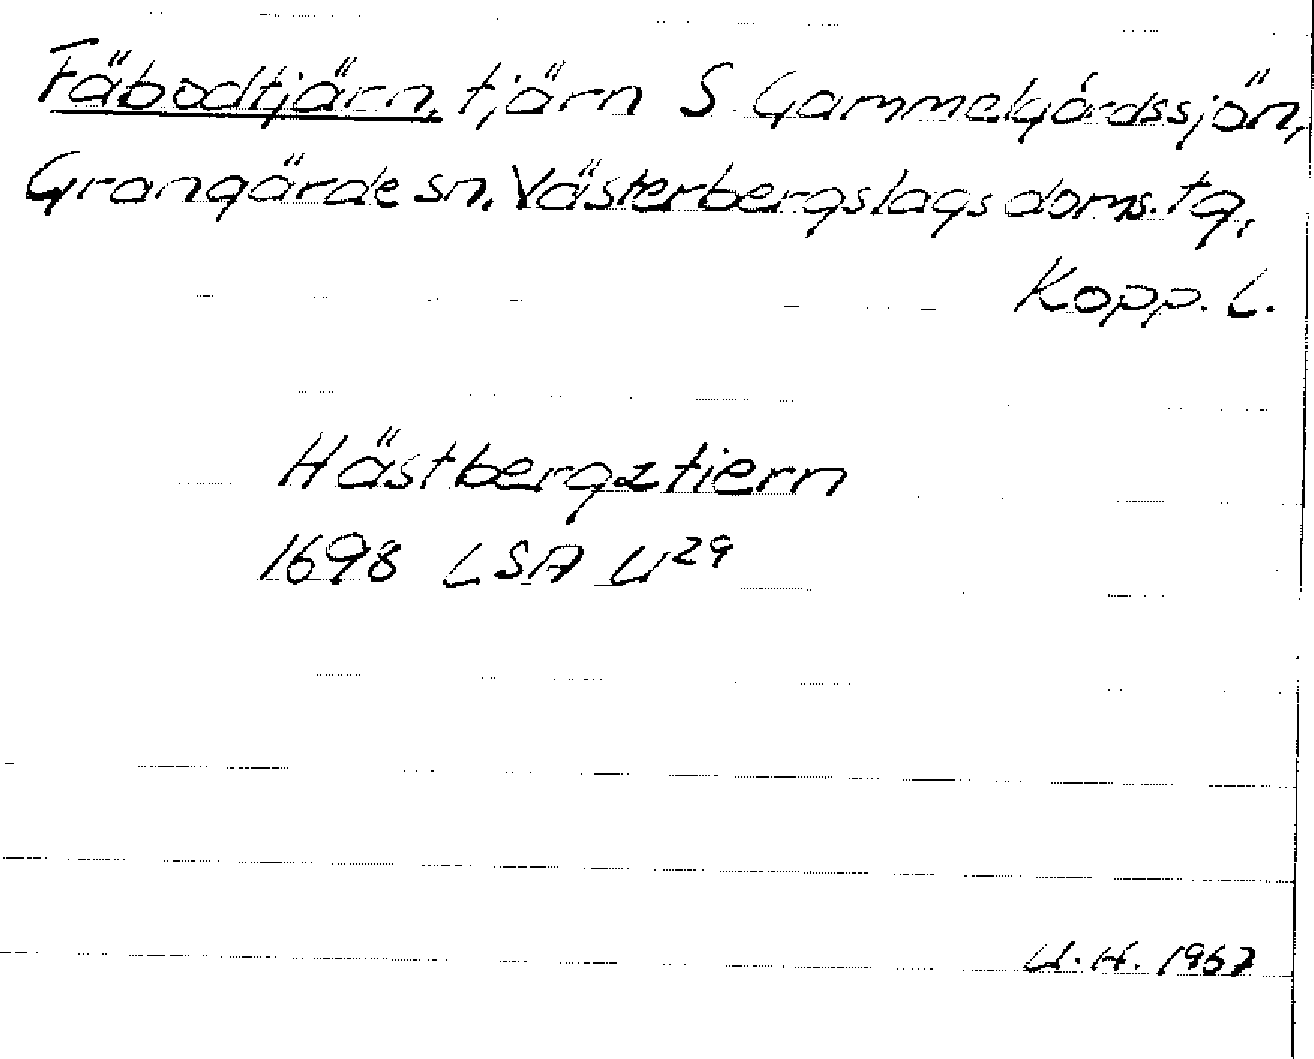 Fäbodtjärn, tjärn S Gammelgårdssjön,
Grangärde sn, Västerbergslags doms. tg,
Kopp. L.
Hästbergztiern
1698 LSA U29
U. H. 1967